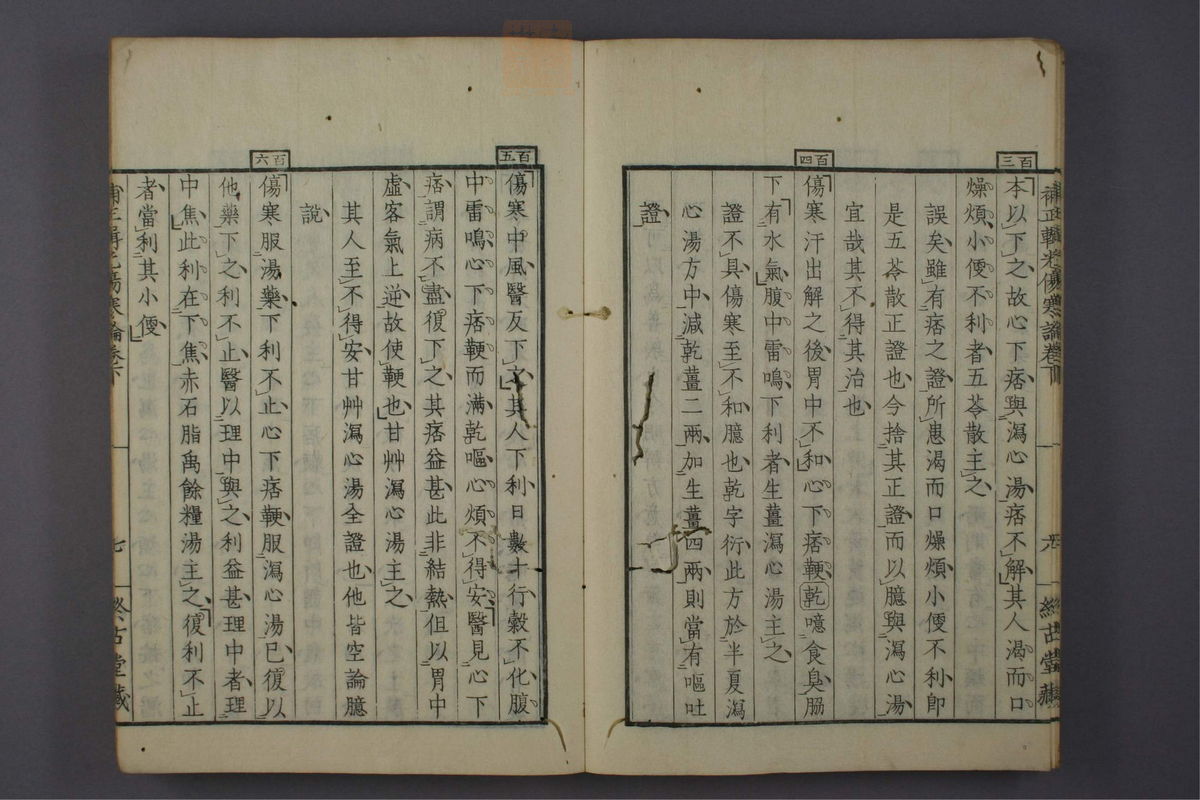 百三
本以下之故心下痞與瀉心湯痞不解其人渴而口
燥煩小便不利者五苓散主之
誤矣雖有痞之證所患渴而口燥煩小便不利卽
是五苓散正證也今捨其正證而以臆與瀉心湯
宜哉其不得其治也
百四
傷寒汗出解之後胃中不和心下痞鞕乾噫食臭脇
下有水氣腹中雷鳴下利者生薑瀉心湯主之
證不具傷寒至不和臆也乾字衍此方於半夏瀉
心湯方中減乾薑二兩加生薑四兩則當有嘔吐
證
百五
傷寒中風醫反下之其人下利日數十行穀不化腹
中雷鳴心下痞鞕而滿乾嘔心煩不得安醫見心下
痞謂病不盡復下之其痞益甚此非結熱但以胃中
虛客氣上逆故使鞕也甘艸瀉心湯主之
其人至不得安甘艸瀉心湯全證也他皆空論臆
說
百六
傷寒服湯藥下利不止心下痞鞕服瀉心湯已復以
他藥下之利不止醫以理中與之利益甚理中者理
中焦此利在下焦赤石脂禹餘糧湯主之復利不止
者當利其小便
七